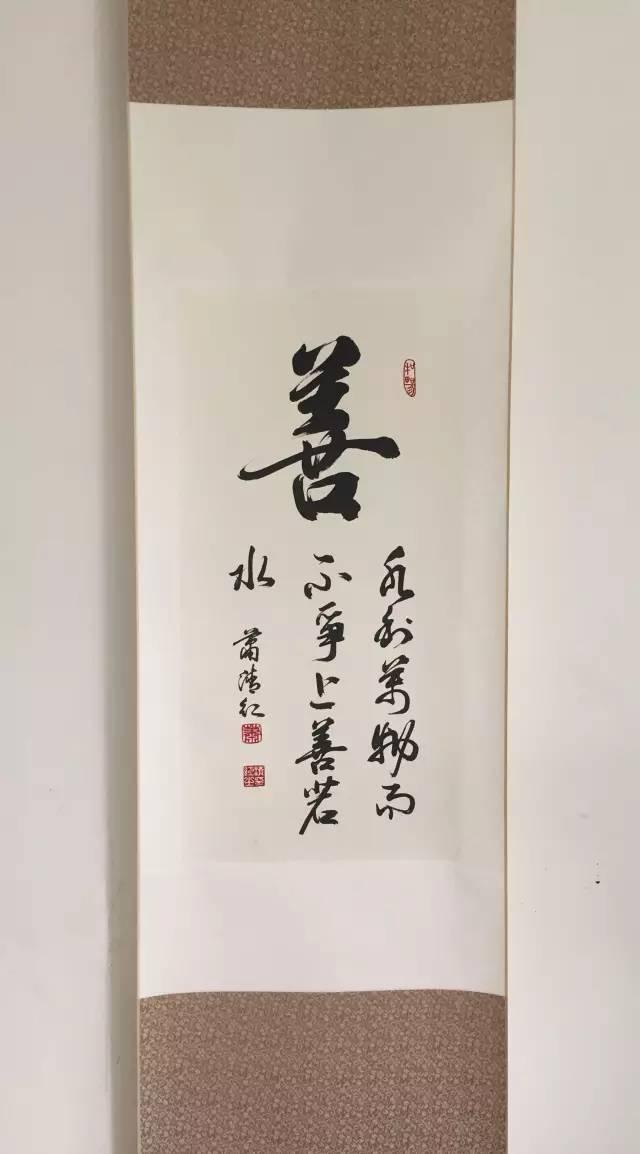 善
水利萬物而
不爭上善若
水
蕭清紅